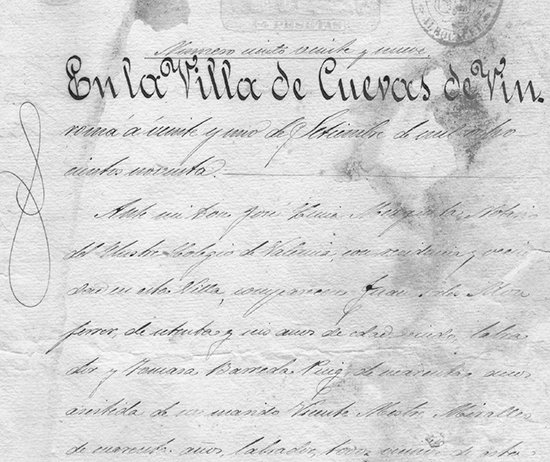 Número ciento veinte y nueve
En la Villa de Cuevas de Vin-
romá á veinte y uno de Setiembre de mil ocho
cientos noventa.
Ante mi Don José
del Ilustre Colegio de Valencia, con residencia y veci
dad en esta Villa, comparecen Juan
Ferrer, de y seis años de edad, viudo, labra
dor y Tomasa Barreda Puig, de cuarenta años
asistida de su marido Vicente Mestre Miralles
de cuarenta años, labrador,